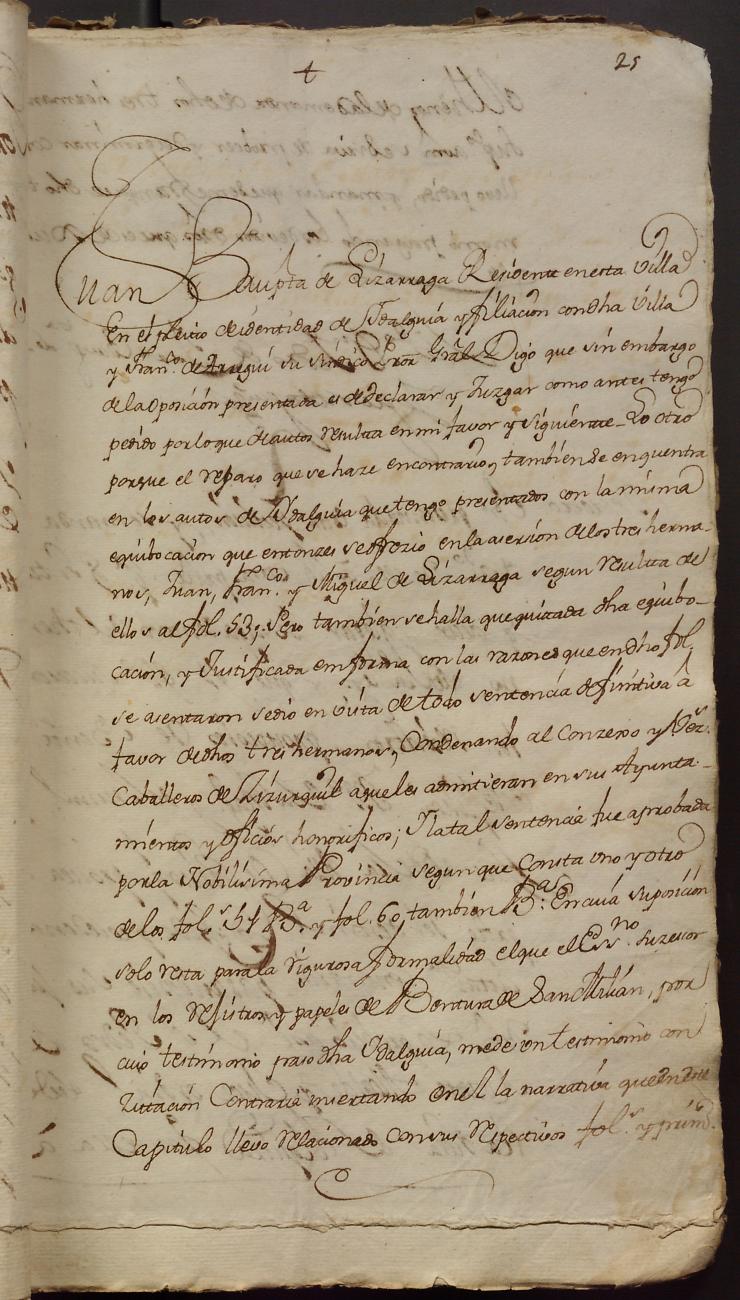 25
Juan Baupta de Lizarraga Residente en esta Villa
En el pleito de identidad de Ydalguia y filiacion con dha Villa
y Franco. de Aregui su sindico Pror Gral Digo que sin embargo
de la oposicion presentada es de declarar y Juzgar como antes tengo
pedido por lo que de autos resulta en mi favor y siguiente Lo otro
porque el reparo que se haze en contrario, tambien se enquentra
en los autos de Ydalguia que tengo presentados con la misma
equibocacion que entonzes se ofrezio en la asersion de los tres herma-
nos, Juan, Franco. y Miguel de Lizarraga segun resulta de
ellos al fol. 53; Pero tambien se halla que quitada dha equibo-
cacion, y Justificada en forma con las razones que en dho fol.
se asentaron se dio en vista de todo sentencia difinitiva a
favor de dhos tres hermanos, Condenando al Conzejo y Vez.
Caballeros de Zizurquil a que les admitieran en sus Ayunta-
mientos y oficios honorificos; Y la tal sentencia fue aprobada
por la Nobilisima Provincia segun que Consta uno y otro
de los fol.s 51 B.a y fol. 60, tambien B.a: En cuia suposicion
solo resta para la rigurosa formalidad el que el Essno. subzesor
en los registros y papeles de Bentura de San Milian, por
cuio testimonio paso dha Ydalguia, me de un testimonio con
Zitacion Contraria insertando en el la narrativa que en este
Capitulo llevo relacionado con sus respectivos fol.s y prim